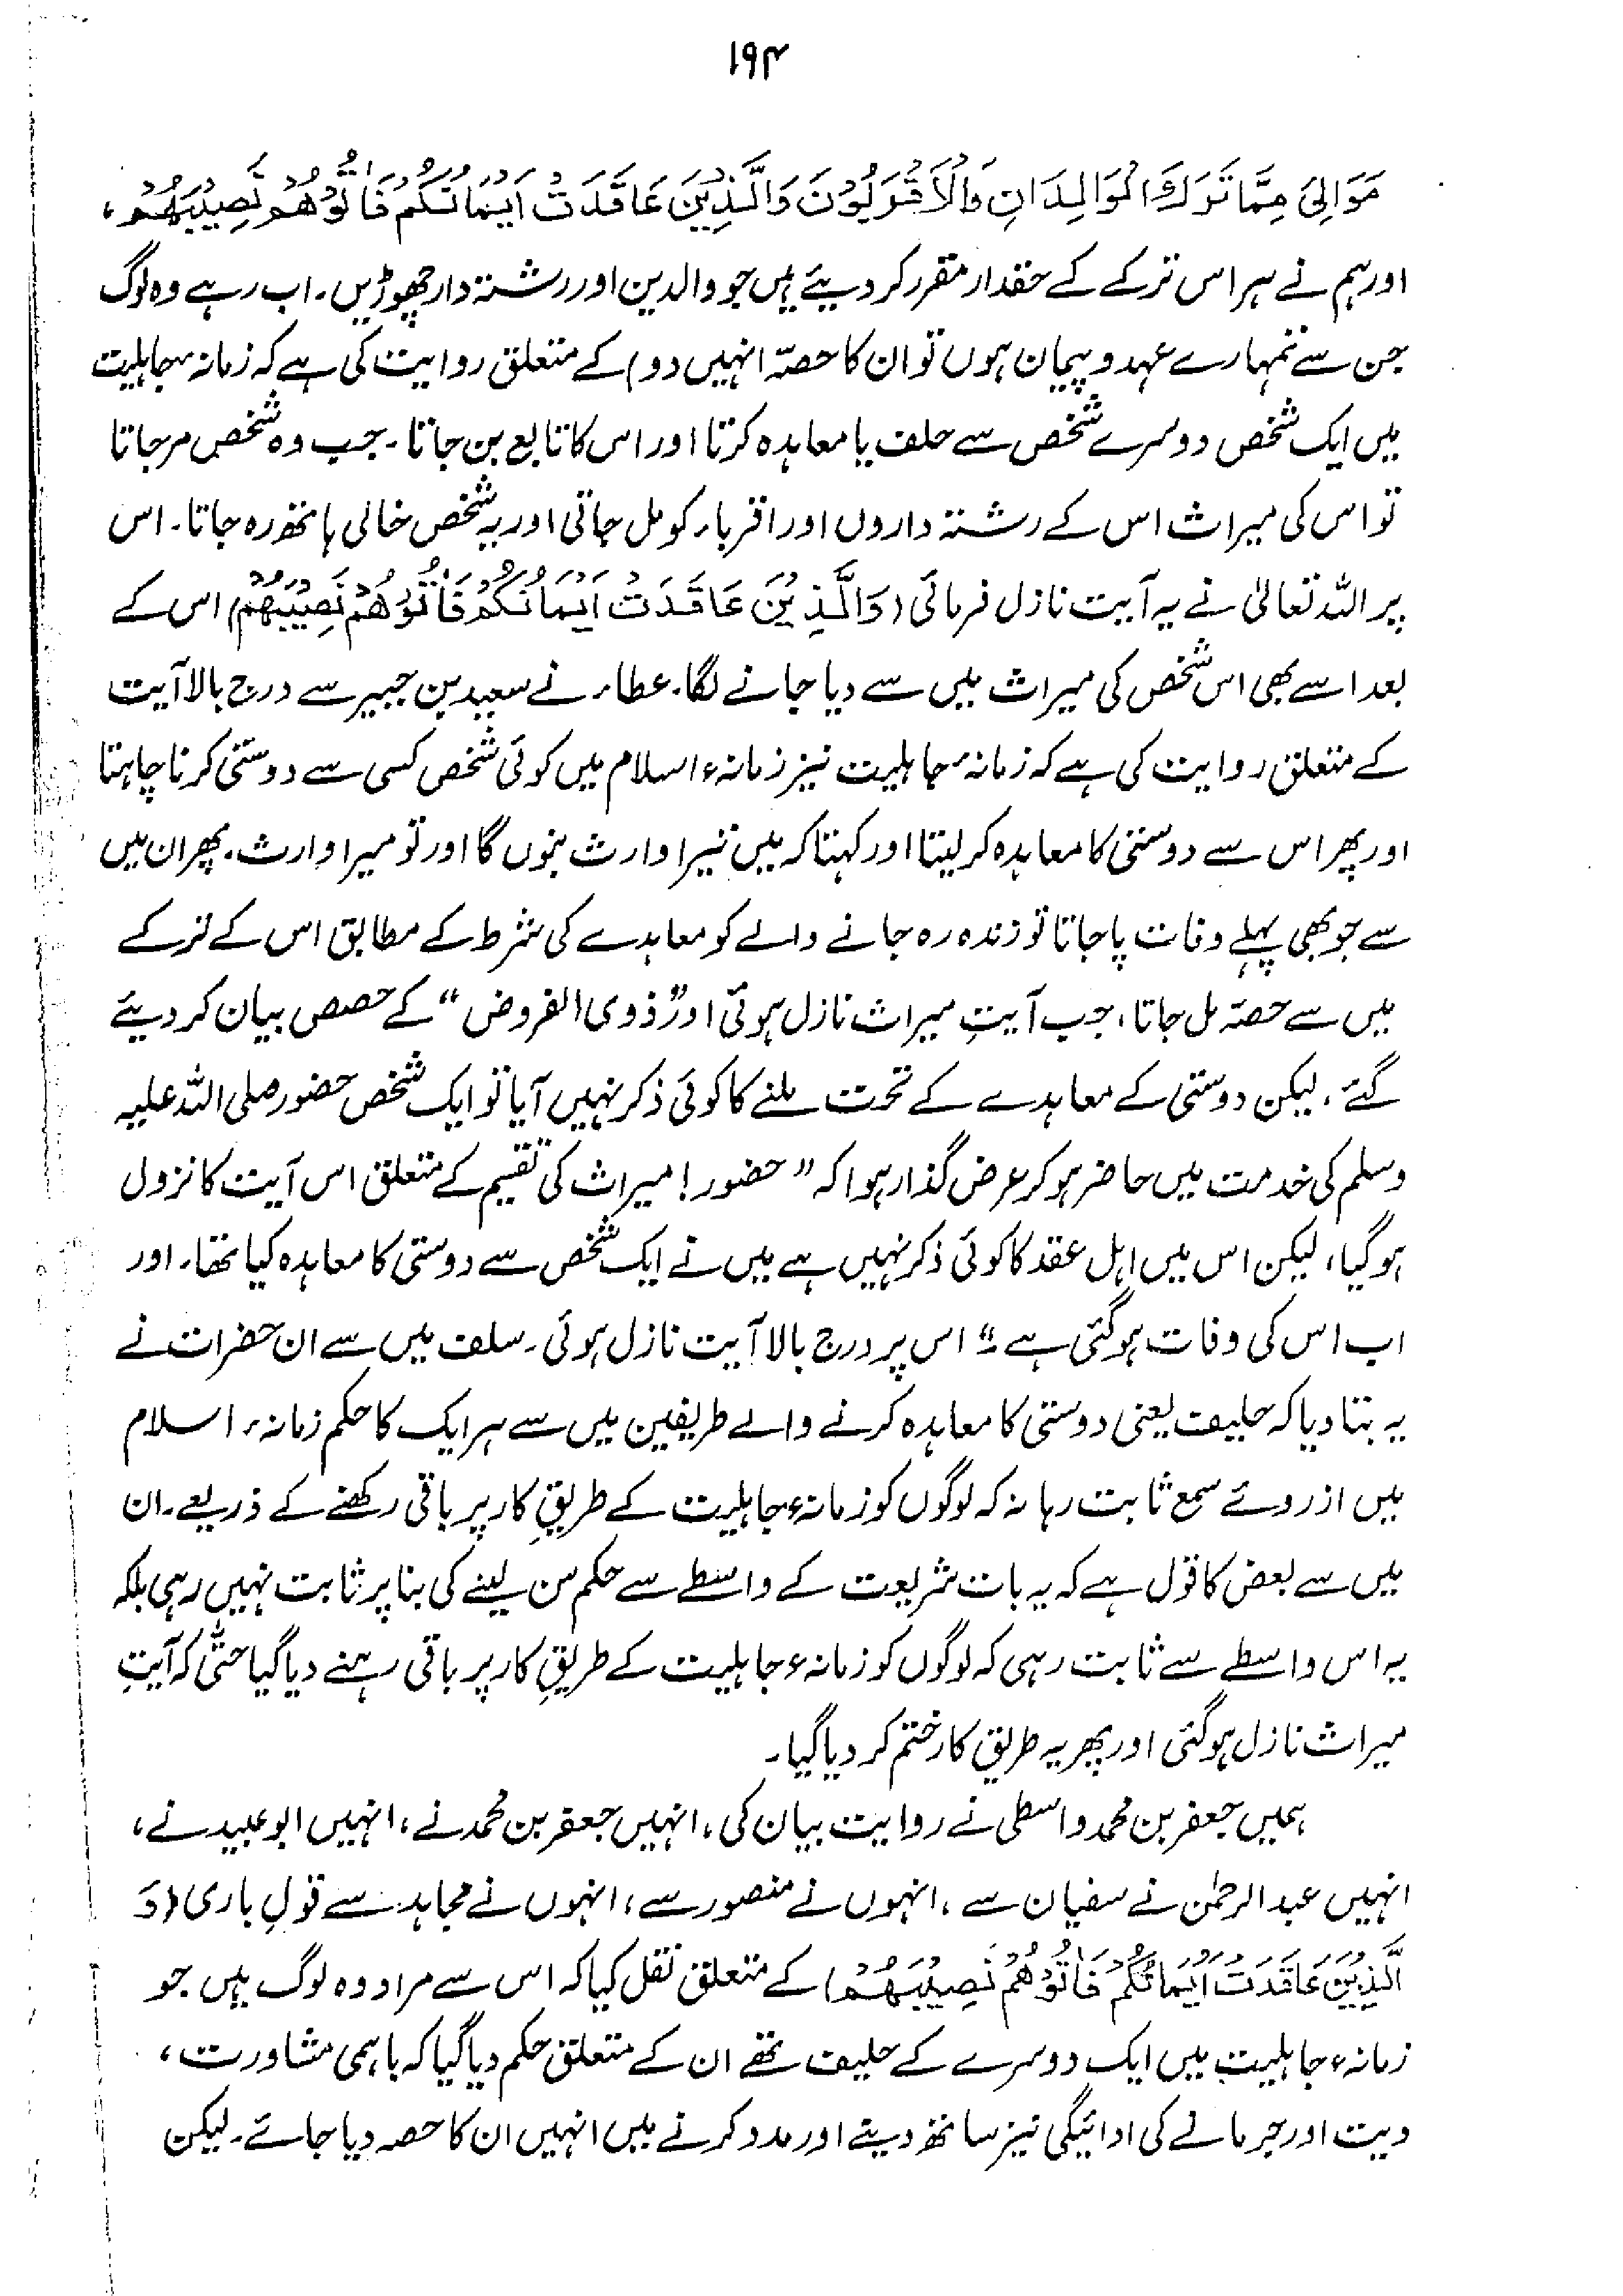 ۱۹۴
مَوَالِیَ مِمَّا تَرَكَ الْوَالِدَانِ وَالْاَقْرَبُوْنَ وَالَّذِيْنَ عَاقَدَتْ اَيْمَانُكُمْ فَاٰتُوْهُمْ نَصِيْبَهُمْ،
اور ہم نے ہر اس ترکے کے حقدار مقرر کر دیئے ہیں جو والدین اور رشتہ دار چھوڑیں۔ اب رہے وہ لوگ
جن سے تمہارے عہد و پیمان ہوں تو ان کا حصہ انہیں دو) کے متعلق روایت کی ہے کہ زمانۂ جاہلیت
میں ایک شخص دوسرے شخص سے حلف یا معاہدہ کرتا اور اس کا تابع بن جاتا۔ جب وہ شخص مر جاتا
تو اس کی میراث اس کے رشتہ داروں اور اقرباء کو مل جاتی اور یہ شخص خالی ہاتھ رہ جاتا۔ اس
پر اللہ تعالیٰ نے یہ آیت نازل فرمائی (وَالَّذِيْنَ عَاقَدَتْ اَيْمَانُكُمْ فَاٰتُوْهُمْ نَصِيْبَهُمْ) اس کے
بعد اسے بھی اس شخص کی میراث میں سے دیا جانے لگا۔ عطاء نے سعید بن جبیر سے درج بالا آیت
کے متعلق روایت کی ہے کہ زمانۂ جاہلیت نیز زمانۂ اسلام میں کوئی شخص کسی سے دوستی کرنا چاہتا
اور پھر اس سے دوستی کا معاہدہ کر لیتا اور کہتا کہ میں تیرا وارث بنوں گا اور تو میرا وارث۔ پھر ان میں
سے جو بھی پہلے وفات پا جاتا تو زندہ رہ جانے والے کو معاہدے کی شرط کے مطابق اس کے ترکے
میں سے حصہ مل جاتا، جب آیتِ میراث نازل ہوئی اور "ذوی الفروض" کے حصص بیان کر دیئے
گئے، لیکن دوستی کے معاہدے کے تحت ملنے کا کوئی ذکر نہیں آیا تو ایک شخص حضور صلی اللہ علیہ
وسلم کی خدمت میں حاضر ہو کر عرض گذار ہوا کہ "حضور! میراث کی تقسیم کے متعلق اس آیت کا نزول
ہو گیا، لیکن اس میں اہل عقد کا کوئی ذکر نہیں ہے میں نے ایک شخص سے دوستی کا معاہدہ کیا تھا۔ اور
اب اس کی وفات ہو گئی ہے۔" اس پر درج بالا آیت نازل ہوئی۔ سلف میں سے ان حضرات نے
یہ بتا دیا کہ حلیف یعنی دوستی کا معاہدہ کرنے والے طریفین میں سے ہر ایک کا حکم زمانۂ اسلام
میں از روئے سمع ثابت رہا نہ کہ لوگوں کو زمانۂ جاہلیت کے طریقِ کار پر باقی رکھنے کے ذریعے۔ ان
میں سے بعض کا قول ہے کہ یہ بات شریعت کے واسطے سے حکم سن لینے کی بنا پر ثابت نہیں رہی بلکہ
یہ اس واسطے سے ثابت رہی کہ لوگوں کو زمانۂ جاہلیت کے طریقِ کار پر باقی رہنے دیا گیا حتیٰ کہ آیتِ
میراث نازل ہو گئی اور پھر یہ طریق کار ختم کر دیا گیا۔
ہمیں جعفر بن محمد واسطی نے روایت بیان کی، انہیں جعفر بن محمد نے، انہیں ابو عبید نے،
انہیں عبد الرحمٰن نے سفیان سے، انہوں نے منصور سے، انہوں نے مجاہد سے قولِ باری (وَ
الَّذِيْنَ عَاقَدَتْ اَيْمَانُكُمْ فَاٰتُوْهُمْ نَصِيْبَهُمْ) کے متعلق نقل کیا کہ اس سے مراد وہ لوگ ہیں جو
زمانۂ جاہلیت میں ایک دوسرے کے حلیف تھے ان کے متعلق حکم دیا گیا کہ باہمی مشاورت،
دیت اور جرمانے کی ادائیگی نیز ساتھ دینے اور مدد کرنے میں انہیں ان کا حصہ دیا جائے۔ لیکن